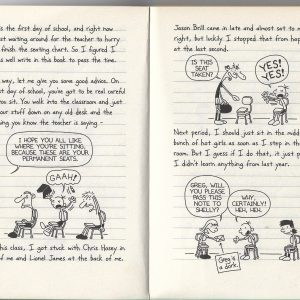 is the first day of school, and right now
just waiting around for the teacher to hurry
finish the seating chart. So I figured I
as well write in this book to pass the time.
way, let me give you some good advice. On
st day of school, you've got to be real careful
you sit. You walk into the classroom and just
your stuff down on any old desk and the
ing you know the teacher is saying -
I HOPE YOU ALL LIKE
WHERE YOU'RE SITTING,
BECAUSE THESE ARE YOUR
PERMANENT SEATS.
GAAH!
this class, I got stuck with Chris Hosey in
of me and Lionel James at the back of me.
Jason Brill came in late and almost sat to m
right, but luckily I stopped that from hap
at the last second.
IS THIS
SEAT
TAKEN?
YES!
YES!
Next period, I should just sit in the midd
bunch of hot girls as soon as I step in the
room. But I guess if I do that, it just p
I didn't learn anything from last year.
GREG, WILL
YOU PLEASE
PASS THIS
NOTE TO
SHELLY?
WHY,
CERTAINLY!
HEH, HEH.
Greg is
a dork.